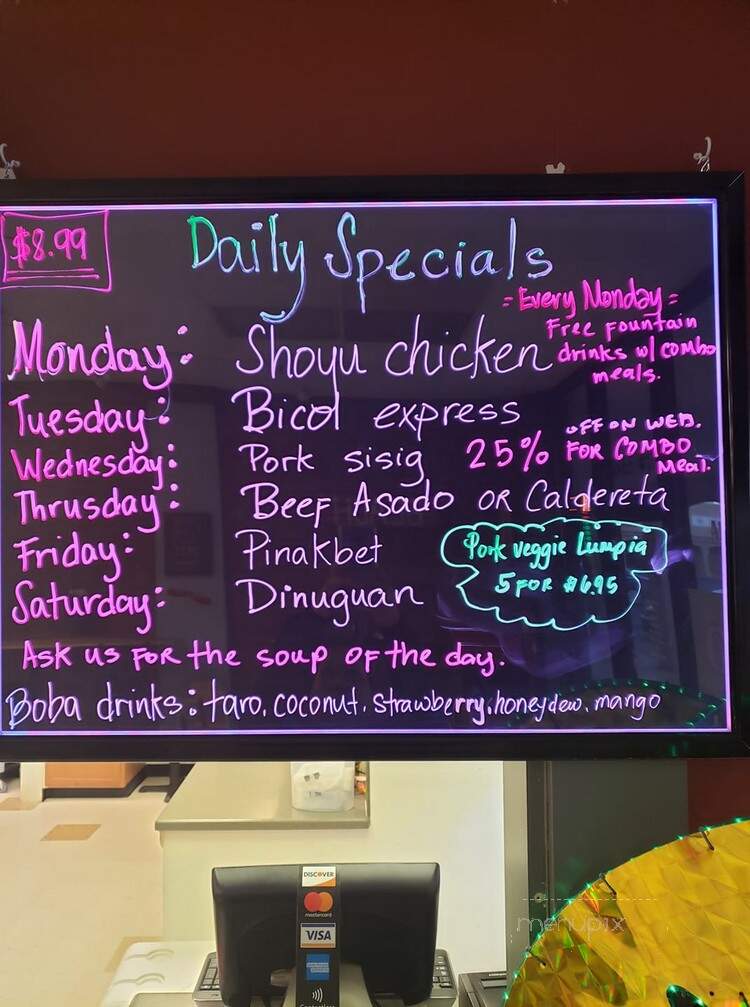 $8.99
Daily Specials
= Every Monday =
Free fountain
drinks w/ combo
meals.
Monday: Shoyu chicken
Tuesday: Bicol express
Wednesday: Pork sisig
25% OFF ON WED.
FOR COMBO
Meal.
Thrusday: Beef Asado or Caldereta
Friday: Pinakbet
Pork veggie Lumpia
5 FOR $6.95
Saturday: Dinuguan
Ask us for the soup of the day.
Boba drinks: taro, coconut, strawberry, honeydew, mango
DISCOVER
mastercard
VISA
AMERICAN EXPRESS
Contactless
menupix